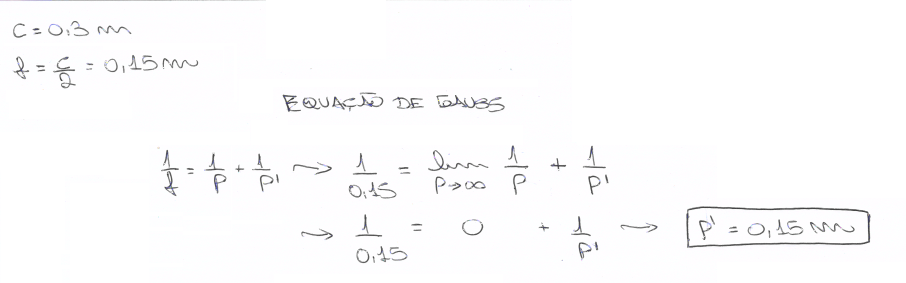 C = 0,3 m
f = c/2 = 0,15 m
EQUAÇÃO DE GAUSS
1/f = 1/p + 1/p' → 1/0,15 = lim p→∞ 1/p + 1/p'
→ 1/0,15 = 0 + 1/p' → p' = 0,15 m